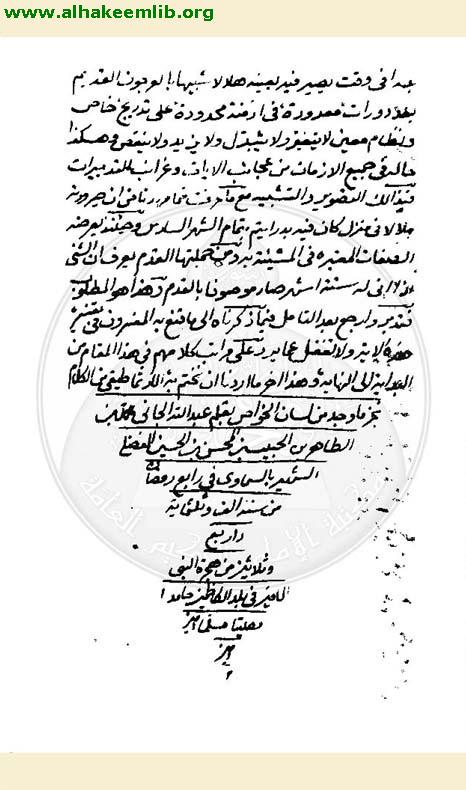 www.alhakeemlib.org
وقت يصير فيه بعينه هلالا شبيها بالعرجون القديم
بعد دورات معدودة في ازمنة محدودة على تدريج خاص
ونظام معين لا يتغير ولا يتبدل ولا يزيد ولا ينقص وهكذا
حاله في جميع الازمان من عجائب الايات وغرائب التدبيرات
التصوير والتشبيه مع ما عرفت ان صيرورته
هلالا في منزل كان فيه بدرا يتم بتمام الشهر السادس وحينئذ يعرضه
الصفات المعتبرة في المشبه به ومن جملتها القدم يعرف ان الشئ
اذا اتى له ستة اشهر صار موصوفا بالقدم وهذا هو المطلوب
فتدبر وارجع بعد التامل فيما ذكرناه الى ما قنع به المفسرون في تفسير
هذه الاية ولا تغفل عما يرد على مراتب كلامهم في هذا المقام من
البداية الى النهاية وهذا اخر ما اردنا ان نختم به الكلام
تم ما وجد من لسان الخواص بقلم عبد الله الجاني محمد بن
الطاهر بن الحبيب بن الحسين
الشهير بالسماوي في رابع رمضان
من سنة الف وثلثمائة
واربع
وثلاثين من هجرة النبي
الامين في بلد الكاظمين حامدا
مصليا مسلما